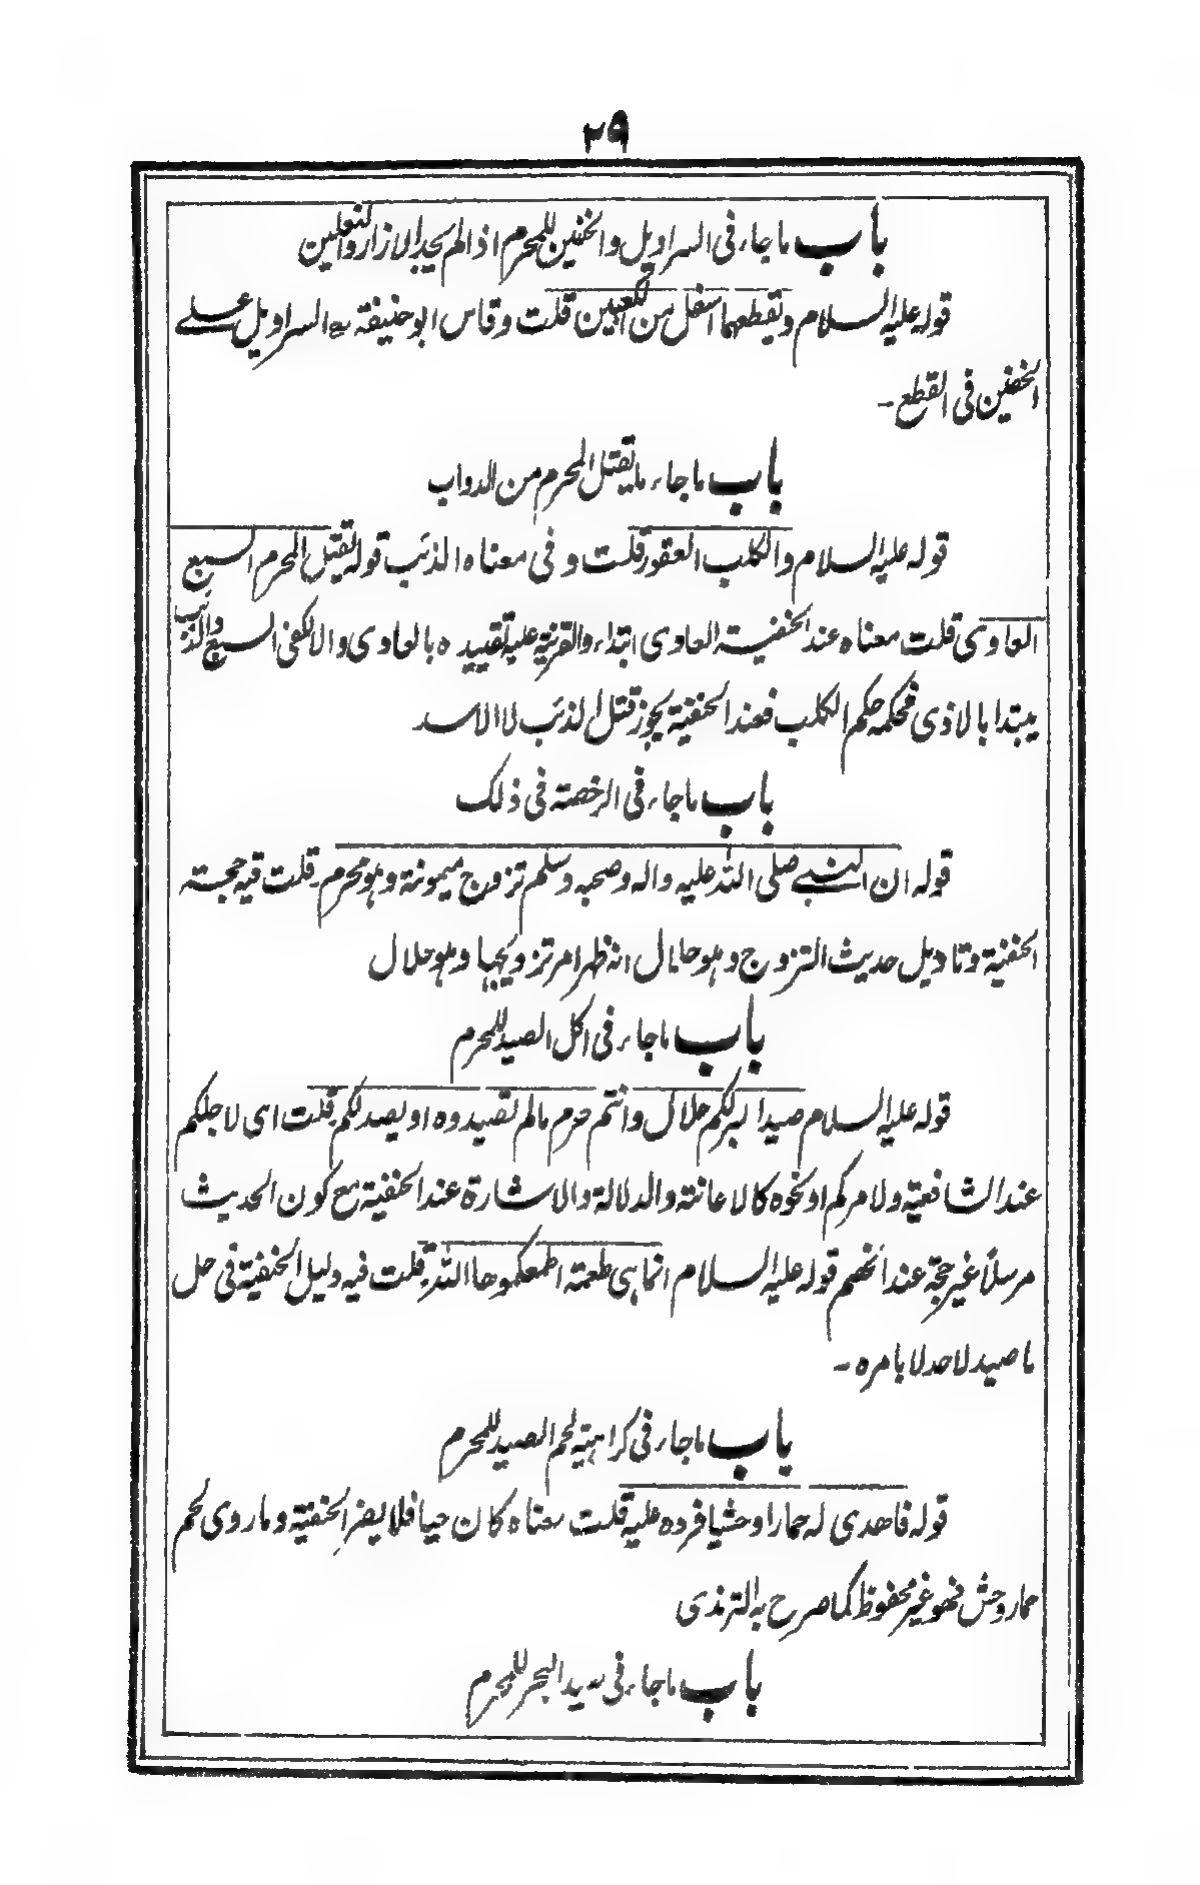 ٢٩
باب ماجاء فى السراويل والخفين للمحرم اذا لم يجد الازار والنعلين
قوله عليه السلام وليقطعهما اسفل من الكعبين قلت وقاس ابوحنيفة رح السراويل على
الخفين فى القطع -
باب ماجاء ما يقتل المحرم من الدواب
قوله عليه السلام والكلب العقور قلت وفى معناه الذئب قوله يقتل المحرم السبع
العاوى قلت معناه عند الحنفية العاوى ابتداء والقرينة عليه تقييده بالعاوى والا لكفى السبع والذئب
يبتدا بالاذى فحكمه حكم الكلب فعند الحنفية يجوز قتل الذئب لا الاسد
باب ماجاء فى الرخصة فى ذلك
قوله ان النبى صلى الله عليه واله وصحبه وسلم تزوج ميمونة وهو محرم قلت فيه حجة
الحنفية وتاويل حديث التزوج وهو حلال انه ظهر امر تزويجها وهو حلال
باب ماجاء فى اكل الصيد للمحرم
قوله عليه السلام صيد البر لكم حلال وانتم حرم مالم تصيدوه او يصد لكم قلت اى لاجلكم
عند الشافعية ولامركم او نحوه كالاعانة والدلالة والاشارة عند الحنفية مع كون الحديث
مرسلاً غير حجة عندانهم قوله عليه السلام انما هى طعمة اطعمكموها الله قلت فيه دليل الحنفية فى حل
ما صيد لاحد لا بامره -
باب ماجاء فى كراهية لحم الصيد للمحرم
قوله فاهدى له حمارا وحشيا فرده عليه قلت معناه كان حيا فلا يضر الحنفية وما روى لحم
حمار وحش فهو غير محفوظ كما صرح به الترمذى
باب ماجاء فى صيد البحر للمحرم